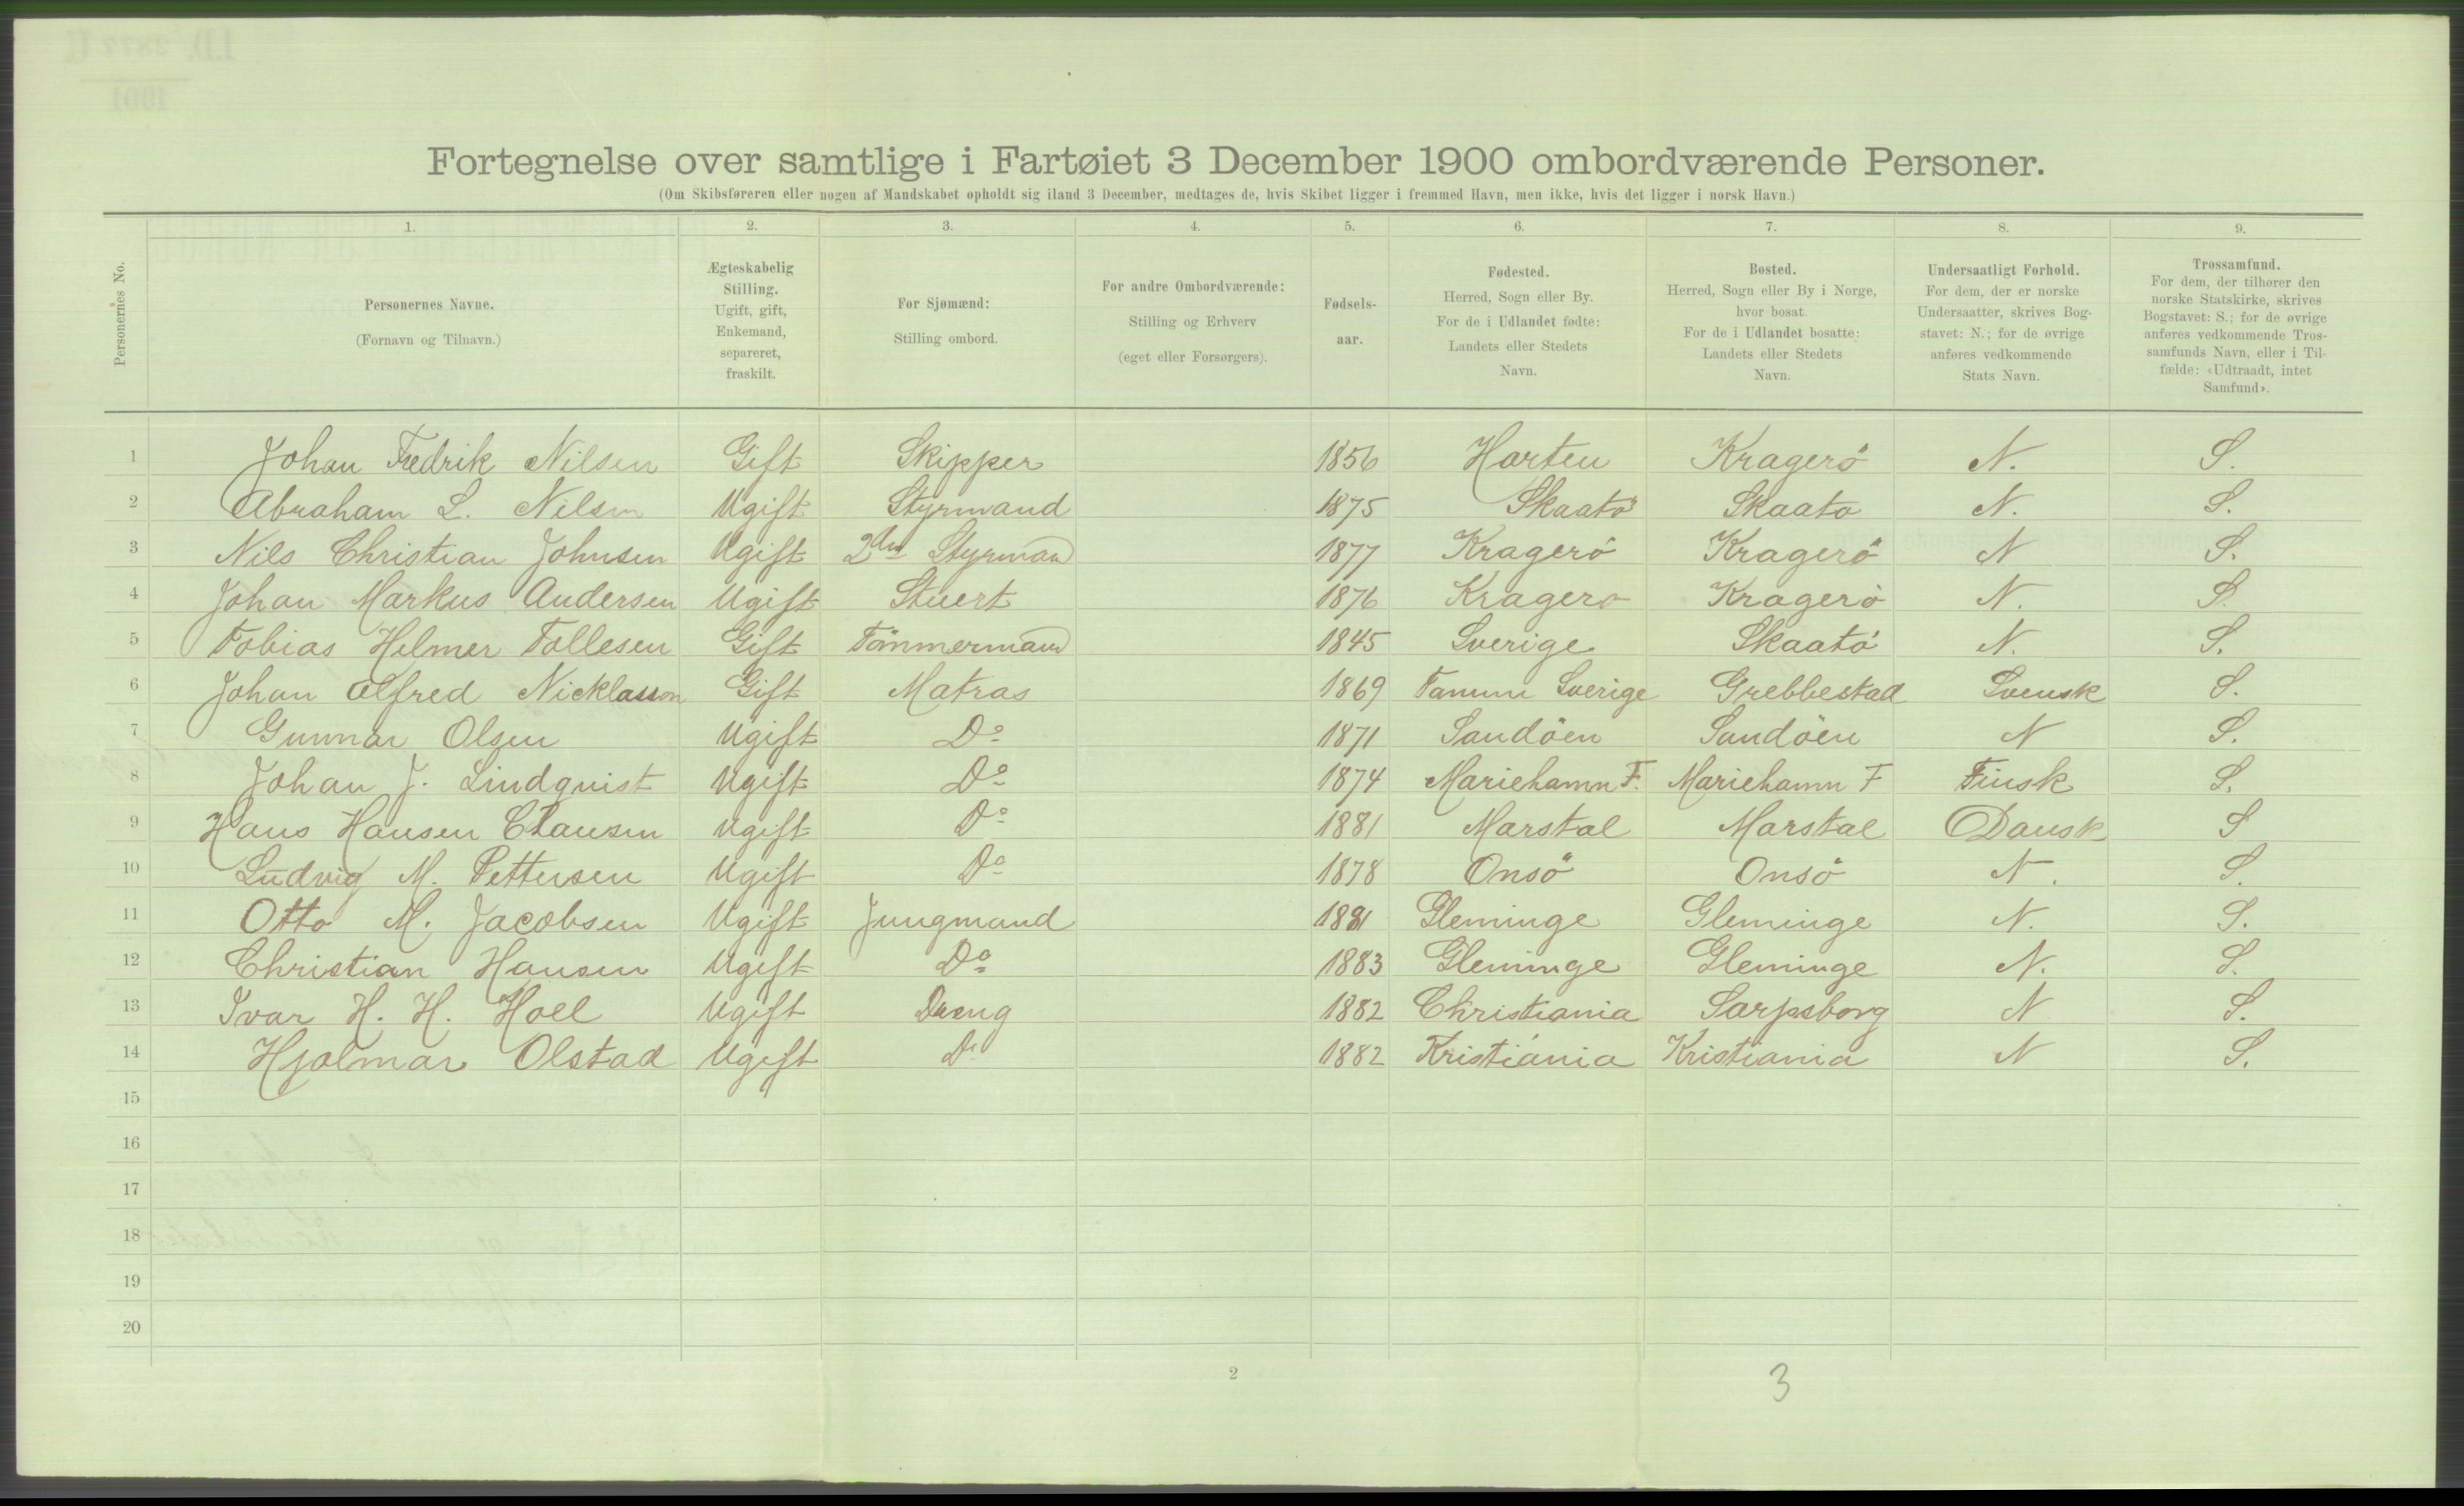 Fortegnelse over samtlige i Fartøiet 3 December 1900 ombordværende Personer.
(Om Skibsføreren eller nogen af Mandskabet opholdt sig iland 3 December, medtages de, hvis Skibet ligger i fremmed Havn, men ikke, hvis det ligger i norsk Havn.)
Personernes No.
1. 2. 3. 4. 5. 6. 7. 8. 9.
Personernes Navne.
(Fornavn og Tilnavn.)
Ægteskabelig
Stilling.
Ugift, gift,
Enkemand,
separeret,
fraskilt.
For Sjømænd:
Stilling ombord.
For andre Ombordværende:
Stilling og Erhverv
(eget eller Forsørgers).
Fødsels-
aar.
Fødested.
Herred, Sogn eller By.
For de i Udlandet fødte:
Landets eller Stedets
Navn.
Bosted.
Herred, Sogn eller By i Norge,
hvor bosat.
For de i Udlandet bosatte:
Landets eller Stedets
Navn.
Undersaatligt Forhold.
For dem, der er norske
Undersaatter, skrives Bog-
stavet: N.; for de øvrige
anføres vedkommende
Stats Navn.
Trossamfund.
For dem, der tilhører den
norske Statskirke, skrives
Bogstavet: S.; for de øvrige
anføres vedkommende Tros-
samfunds Navn, eller i Til-
fælde: «Udtraadt, intet
Samfund».
1 Johan Fredrik Nilsen Gift Skipper 1856 Horten Kragerö N. S.
2 Abraham L. Nilsen Ugift Styrmand 1875 Skaatö Skaato N. S.
3 Nils Christian Johnsen Ugift 2den Styrman 1877 Kragerö Kragerö N S.
4 Johan Markus Andersen Ugift Stuert 1876 Kragero Kragerö N. S.
5 Tobias Helmer Tollesen Gift Tömmermand 1845 Sverige Skaatö N. S.
6 Johan Alfred Nicklasson Gift Matras 1869 Tanum Sverige Grebbestad Svensk S.
7 Gunnar Olsen Ugift Do 1871 Sandöen Sandöen N S.
8 Johan J. Lindqvist Ugift Do 1874 Mariehamn F. Mariehamn F Finsk S.
9 Hans Hansen Clausen Ugift Do 1881 Marstal Marstal Dansk S
10 Ludvig M. Pettersen Ugift Do 1878 Onsö Onsö N. S.
11 Otto M. Jacobsen Ugift Jungmand 1881 Gleminge Gleminge N. S.
12 Christian Hansen Ugift Do 1883 Gleminge Gleminge N. S.
13 Ivar H. H. Hoel Ugift Dreng 1882 Christiania Sarpsborg N S.
14 Hjalmar Olstad Ugift Do 1882 Kristiania Kristiania N S.
15
16
17
18
19
20
2
3